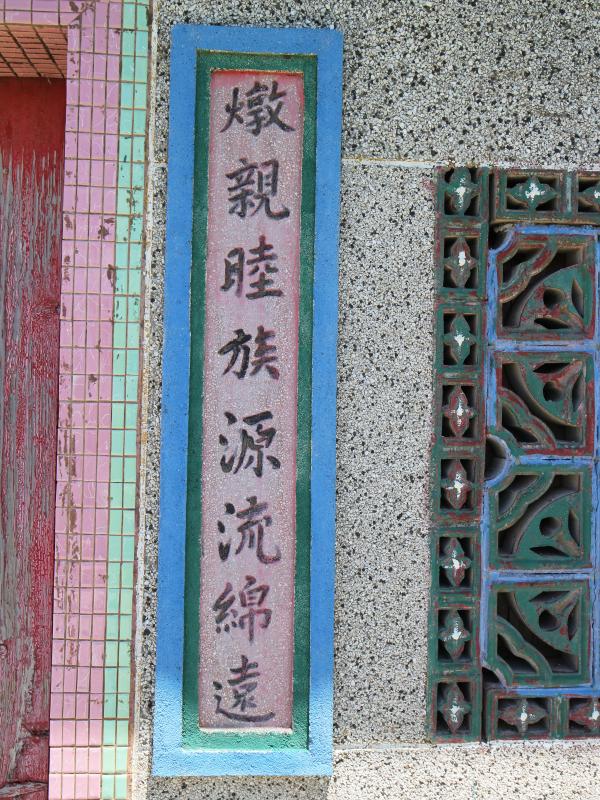 燉親睦族源流綿遠